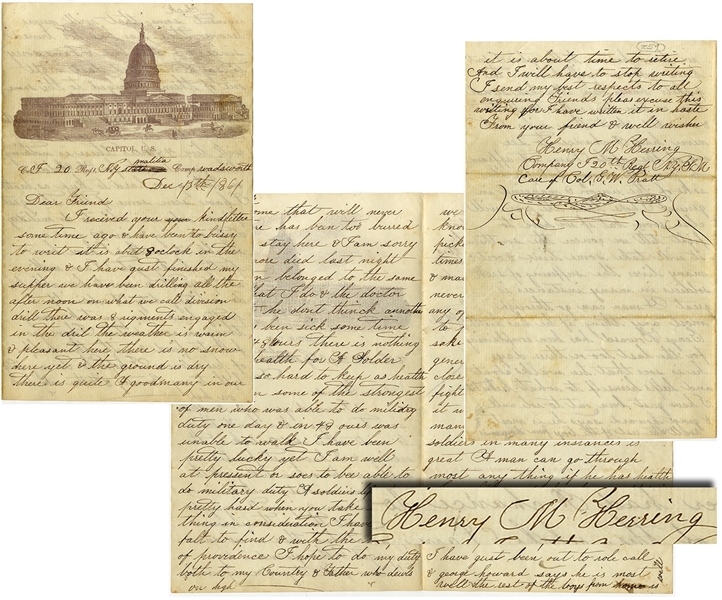 CAPITOL, U.S.
Co F. 20 Regt NY state militia Camp wadsworth
Dec 13th 1861
Dear Friend
I recived your your kind letter
some time ago & have been to bussy
to writ it is abot 8 oclock in the
evening & I have gust finished my
supper we have been drilling all the
after noon on what we call division
drill there was 8 rigments engaged
in the dril the weather is warm
& pleasant here there is no snow
here yet & the ground is dry
there is quite A good many in our
me that will never
re has been two buried
stay here & I am sorry
ore died last night
n belonged to the same
hat I do & the doctor
he dont thinck annother
been sick some time
48 ours there is nothing
health for A Solder
so hard to keep as health
n some of the strongest
of men who was able to do military
duty one day & in 48 ours was
unable to walk I have been
pretty lucky yet I am well
at pressent or soes to bee able to
do military duty A soldiers
pretty hard when you take
thing in consideration I have
falt to find & with the
of providence I hope to do my duty
both to my Country & Father who dwels
on high
we
know
picke
times
& ma
never
any of
to
sake
gener
close
fight
it w
man
soldiers in many instances is
great A man can go through
most any thing if he has health
I have gust been out to role call
& george howard says he is most
well the rest of the boys from home is well
it is about time to retire
And I will have to stop writing
I send my best respects to all
enquiring Friends pleas excuse this
writing for I have written it in haste
From your friend & well wisher
Henry M Herring
Company F 20th Regt N.Y.S.M
Care of Col, G. W. Pratt
Henry M Herring